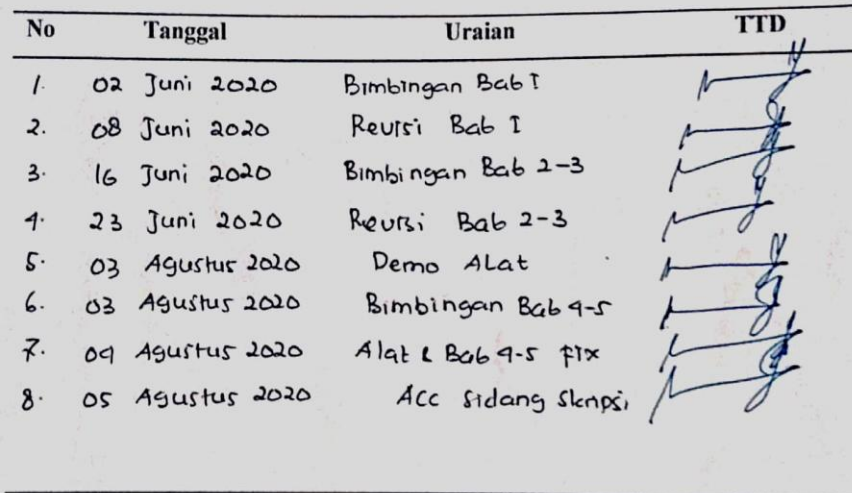 No Tanggal Uraian TTD
1. 02 Juni 2020 Bimbingan Bab I
2. 08 Juni 2020 Revisi Bab I
3. 16 Juni 2020 Bimbingan Bab 2-3
4. 23 Juni 2020 Revisi Bab 2-3
5. 03 Agustus 2020 Demo Alat
6. 03 Agustus 2020 Bimbingan Bab 4-5
7. 04 Agustus 2020 Alat & Bab 4-5 Fix
8. 05 Agustus 2020 Acc Sidang Skripsi